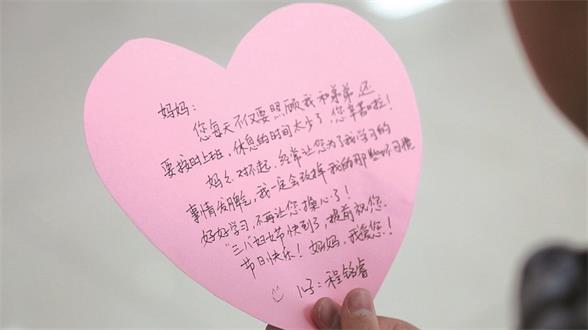 妈妈：
您每天不仅要照顾我和弟弟，还
要按时上班，休息的时间太少了，您辛苦啦！
妈妈，对不起，经常让您为了我学习的
事情发脾气，我一定会改掉我的那些坏习惯
好好学习，不再让您操心了！
"三八"妇女节快到了，提前祝您：
节日快乐！妈妈，我爱您！
儿子：程铭睿